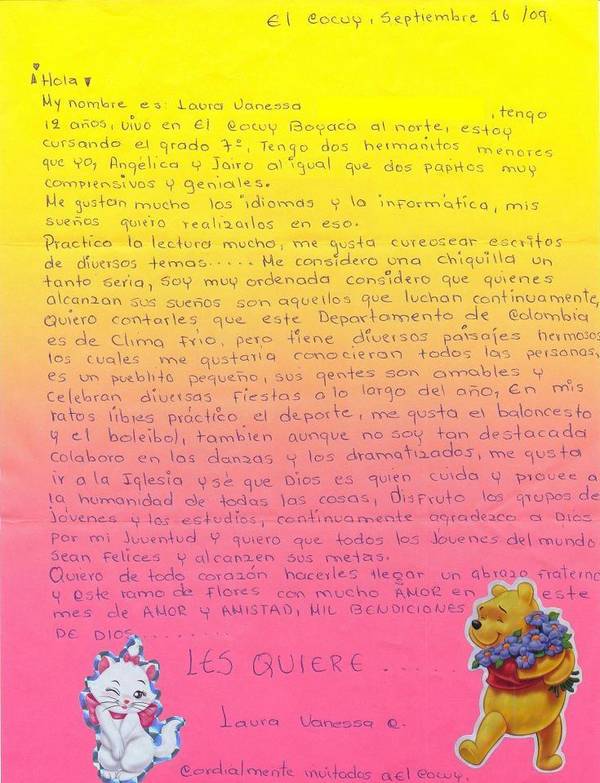 El Cocuy, Septiembre 16 /09.
Hola
My nombre es: Laura Vanessa , tengo
12 años, vivo en El Cocuy Boyacá al norte, estoy
cursando el grado 7º, Tengo dos hermanitos menores
que yo, Angélica y Jairo al igual que dos papitos muy
comprensivos y geniales.
Me gustan mucho los idiomas y la informática, mis
sueños quiero realizarlos en eso.
Practico la lectura mucho, me gusta cureosear escritos
de diversos temas..... Me considero una chiquilla un
tanto seria, soy muy ordenada considero que quienes
alcanzan sus sueños son aquellos que luchan continuamente,
Quiero contarles que este Departamento de Colombia
es de Clima Frío, pero tiene diversos paisajes hermosos
los cuales me gustaría conocieran todos las personas,
es un pueblito pequeño, sus gentes son amables y
celebran diversas fiestas a lo largo del año, En mis
ratos libres práctico el deporte, me gusta el baloncesto
y el boleibol, tambien aunque no soy tan destacada
colaboro en las danzas y los dramatizados, me gusta
ir a la Iglesia y sé que Dios es quien cuida y provee a
la humanidad de todas las cosas, Disfruto los grupos de
jóvenes y los estudios, continuamente agradezco a Dios
por mi Juventud y quiero que todos los Jóvenes del mundo
sean felices y alcanzen sus metas.
Quiero de todo corazón hacerles llegar un abrazo fraterno
y este ramo de flores con mucho AMOR en este
mes de AMOR y AMISTAD, MIL BENDICIONES
DE DIOS.........
LES QUIERE .....
Laura Vanessa C.
Cordialmente invitados a El Cocuy.